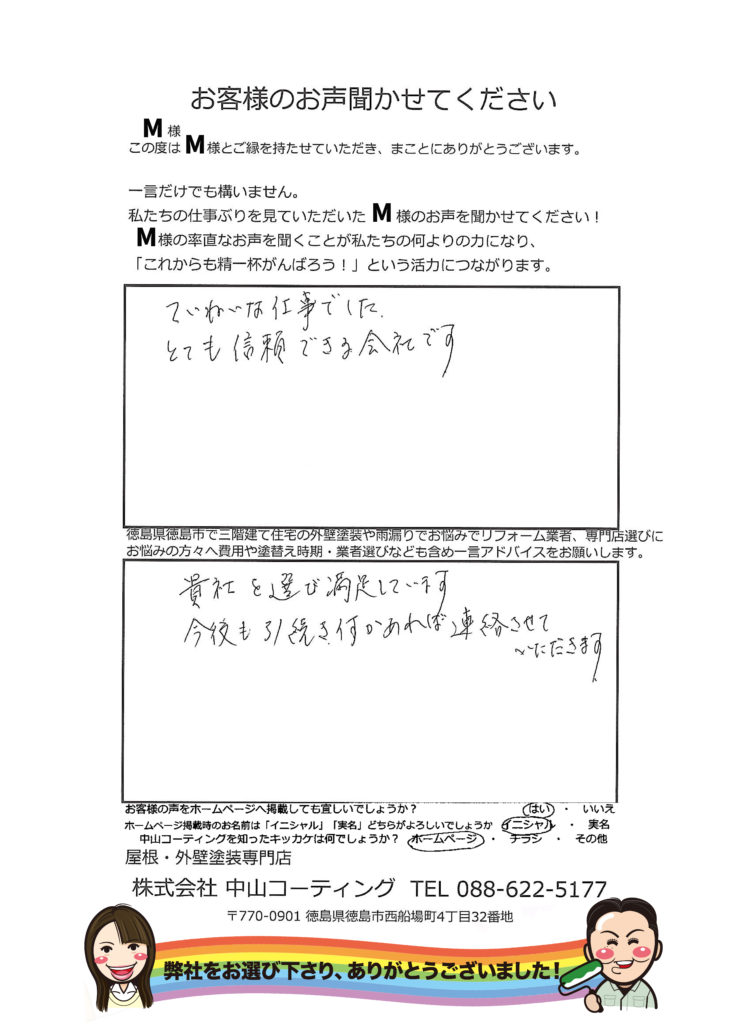 お客様のお声聞かせてください
M 様
この度は M 様とご縁を持たせていただき、まことにありがとうございます。
一言だけでも構いません。
私たちの仕事ぶりを見ていただいた M 様のお声を聞かせてください！
M 様の率直なお声を聞くことが私たちの何よりの力になり、
「これからも精一杯がんばろう！」という活力につながります。
ていねいな仕事でした.
とても信頼できる会社です
徳島県徳島市で三階建て住宅の外壁塗装や雨漏りでお悩みでリフォーム業者、専門店選びに
お悩みの方々へ費用や塗替え時期・業者選びなども含め一言アドバイスをお願いします。
貴社を選び満足しています
今後も引続き何かあれば連絡させて
いただきます
お客様の声をホームページへ掲載しても宜しいでしょうか？ はい ・ いいえ
ホームページ掲載時のお名前は「イニシャル」「実名」どちらがよろしいでしょうか イニシャル ・ 実名
中山コーティングを知ったキッカケは何でしょうか？ ホームページ ・ チラシ ・ その他
屋根・外壁塗装専門店
株式会社 中山コーティング TEL 088-622-5177
〒770-0901 徳島県徳島市西船場町4丁目32番地
弊社をお選び下さり、ありがとうございました！